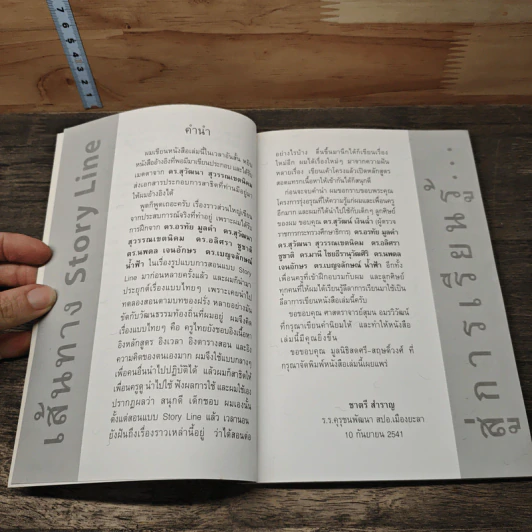 7
6
5
4
3
2
1
เส้นทาง Story Line
คำนำ
ผมเขียนหนังสือเล่มนี้ในเวลาอันสั้น
หนังสืออ้างอิงที่พอมีมาเขียนประกอบ และได้
เมตตาจาก ดร.สุวัฒนา สุวรรณเขตนิคม
ส่งเอกสารประกอบการสาธิตที่ท่านมีอยู่มา
ให้ผมอ้างอิงได้
พูดก็พูดเถอะครับ เรื่องราวส่วนใหญ่เขียน
จากประสบการณ์จริงที่ทำอยู่ เพราะผมได้รับ
การฝึกจาก ดร.อรทัย มูลคำ ดร.สุวัฒนา
สุวรรณเขตนิคม ดร.อลิศรา ชูชาติ
ดร.นพดล เจนอักษร ดร.เบญจลักษณ์
น้ำฟ้า ในเรื่องรูปแบบการสอนแบบ Story
Line มาก่อนหลายครั้งแล้ว และผมก็นำมา
ประยุกต์เรื่องแบบไทยๆ เพราะเคยนำไป
ทดลองสอนตามบทของฝรั่ง หลายอย่างมัน
ขัดกับวัฒนธรรมท้องถิ่นที่ผมอยู่ ผมจึงคิด
เรื่องแบบไทยๆ คือ ครูไทยยังชอบอิงเนื้อหา
อิงหลักสูตร อิงเวลา อิงตารางสอน และอิง
ความคิดของตนเองมาก ผมจึงใช้แบบกลางๆ
เพื่อคนอื่นนำไปปฏิบัติได้ แล้วผมก็สาธิตให้
เพื่อนครูดู นำไปใช้ ฟังผลการใช้ และผมใช้เอง
ปรากฏผลว่า สนุกดี เด็กชอบ ผมเองนั้น
ตั้งแต่สอนแบบ Story Line แล้ว เวลานอน
ยังฝันถึงเรื่องราวเหล่านี้อยู่ ว่าได้สอนต่อ
อย่างไรบ้าง ตื่นขึ้นมานึกได้ก็เขียนเรื่อง
ใหม่อีก ผมได้เรื่องใหม่ๆ มาจากความฝัน
หลายเรื่อง เขียนเค้าโครงแล้วเปิดหลักสูตร
สอดแทรกเนื้อหาให้เข้ากันได้ก็สนุกดี
ก่อนจะจบคำนำ ผมขอกราบขอบพระคุณ
โครงการรุ่งอรุณที่ให้ความรู้แก่ผมและเพื่อนครู
อีกมาก และผมก็ได้นำไปใช้กับเด็กๆ ลูกศิษย์
ของผม ขอบคุณ ดร.สุวัฒน์ เงินฉ่ำ ผู้ตรวจ
ราชการกระทรวงศึกษาธิการ ดร.อรทัย มูลคำ
ดร.สุวัฒนา สุวรรณเขตนิคม ดร.อลิศรา
ชูชาติ ดร.มานี ไชยธีรานุวัฒศิริ ดร.นพดล
เจนอักษร ดร.เบญจลักษณ์ น้ำฟ้า อีกทั้ง
เพื่อนครูที่เข้าฝึกอบรมกับผม และลูกศิษย์
ทุกคนที่ให้ผมได้เรียนรู้ลีลาการเรียนมาใช้เป็น
ลีลาการเขียนหนังสือเล่มนี้ครับ
ขอบคุณ ศาสตราจารย์สุมน อมรวิวัฒน์
ที่กรุณาเขียนคำนิยมให้ และทำให้หนังสือ
เล่มนี้มีคุณยิ่งขึ้น
ขอบคุณ มูลนิธิสดศรี-สฤษดิ์วงศ์ ที่
กรุณาจัดพิมพ์หนังสือเล่มนี้เผยแพร่
ชาตรี สำราญ
ร.ร.คุรุชนพัฒนา สปอ.เมืองยะลา
10 กันยายน 2541
สู่การเรียนรู้...